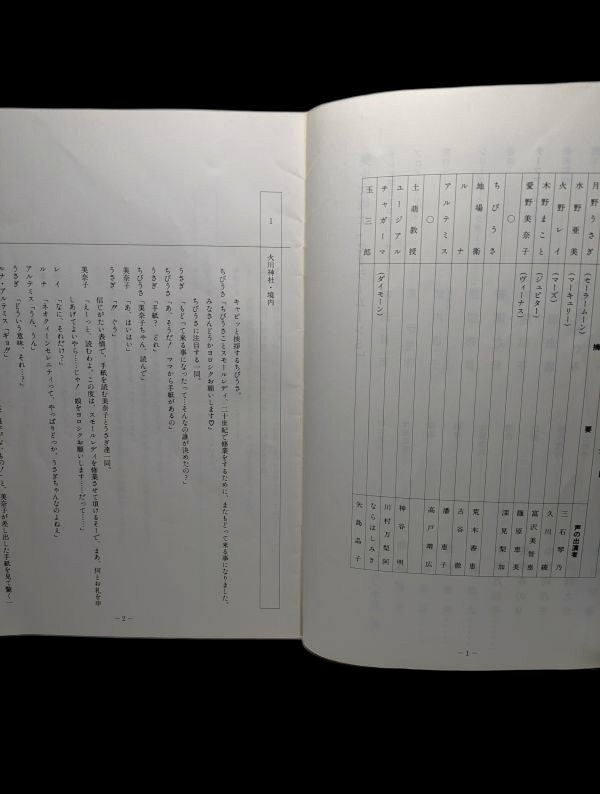 摘
要
声の出演者
月野うさぎ
(セーラームーン)
三石琴乃
水野亜美
(マーキュリー)
久川綾
火野レイ
(マーズ)
富沢美智恵
木野まこと
(ジュピター)
篠原恵美
愛野美奈子
(ヴィーナス)
深見梨加
○
ちびうさ
荒木香恵
地場衛
古谷徹
ルナ
潘恵子
アルテミス
高戸靖広
○
土萠教授
神谷明
ユージアル
川村万梨阿
チャガーマ
(ダイモーン)
ならはしみき
玉三郎
矢島晶子
−1−
1
火川神社・境内
キャピッと挨拶するちびうさ。
ちびうさ「ちびうさことスモールレディ、二十世紀で修業をするために、またもどって来る事になりました。
みなさんどうかヨロシクお願いします♡」
ちびうさに注目する一同。
うさぎ「もどって来る事になったって…そんなの誰が決めたの?」
ちびうさ「あ、そうだ!ママから手紙があるの」
うさぎ「手紙?どれ」
ちびうさ「美奈子ちゃん、読んで」
美奈子「あ、はいはい」
うさぎ「!!ぐう」
信じがたい表情で、手紙を読む美奈子とうさぎ達一同。
美奈子「えーっと、読むわよ。この度は、スモールレディを修業させて頂けるそーで、まあ、何とお礼を申
しあげてよいやら……じゃ!娘をヨロシクお願いします……だって……」
レイ「なに、それだけ?」
ルナ「ネオクイーンセレニティって、やっぱりどっか、うさぎちゃんなのよねぇ」
アルテミス「うん、うん」
うさぎ「どういう意味、それ…?」
ルナ・アルテミス「ギョ!!」
美奈子が差し出した手紙を見て驚く一
−2−